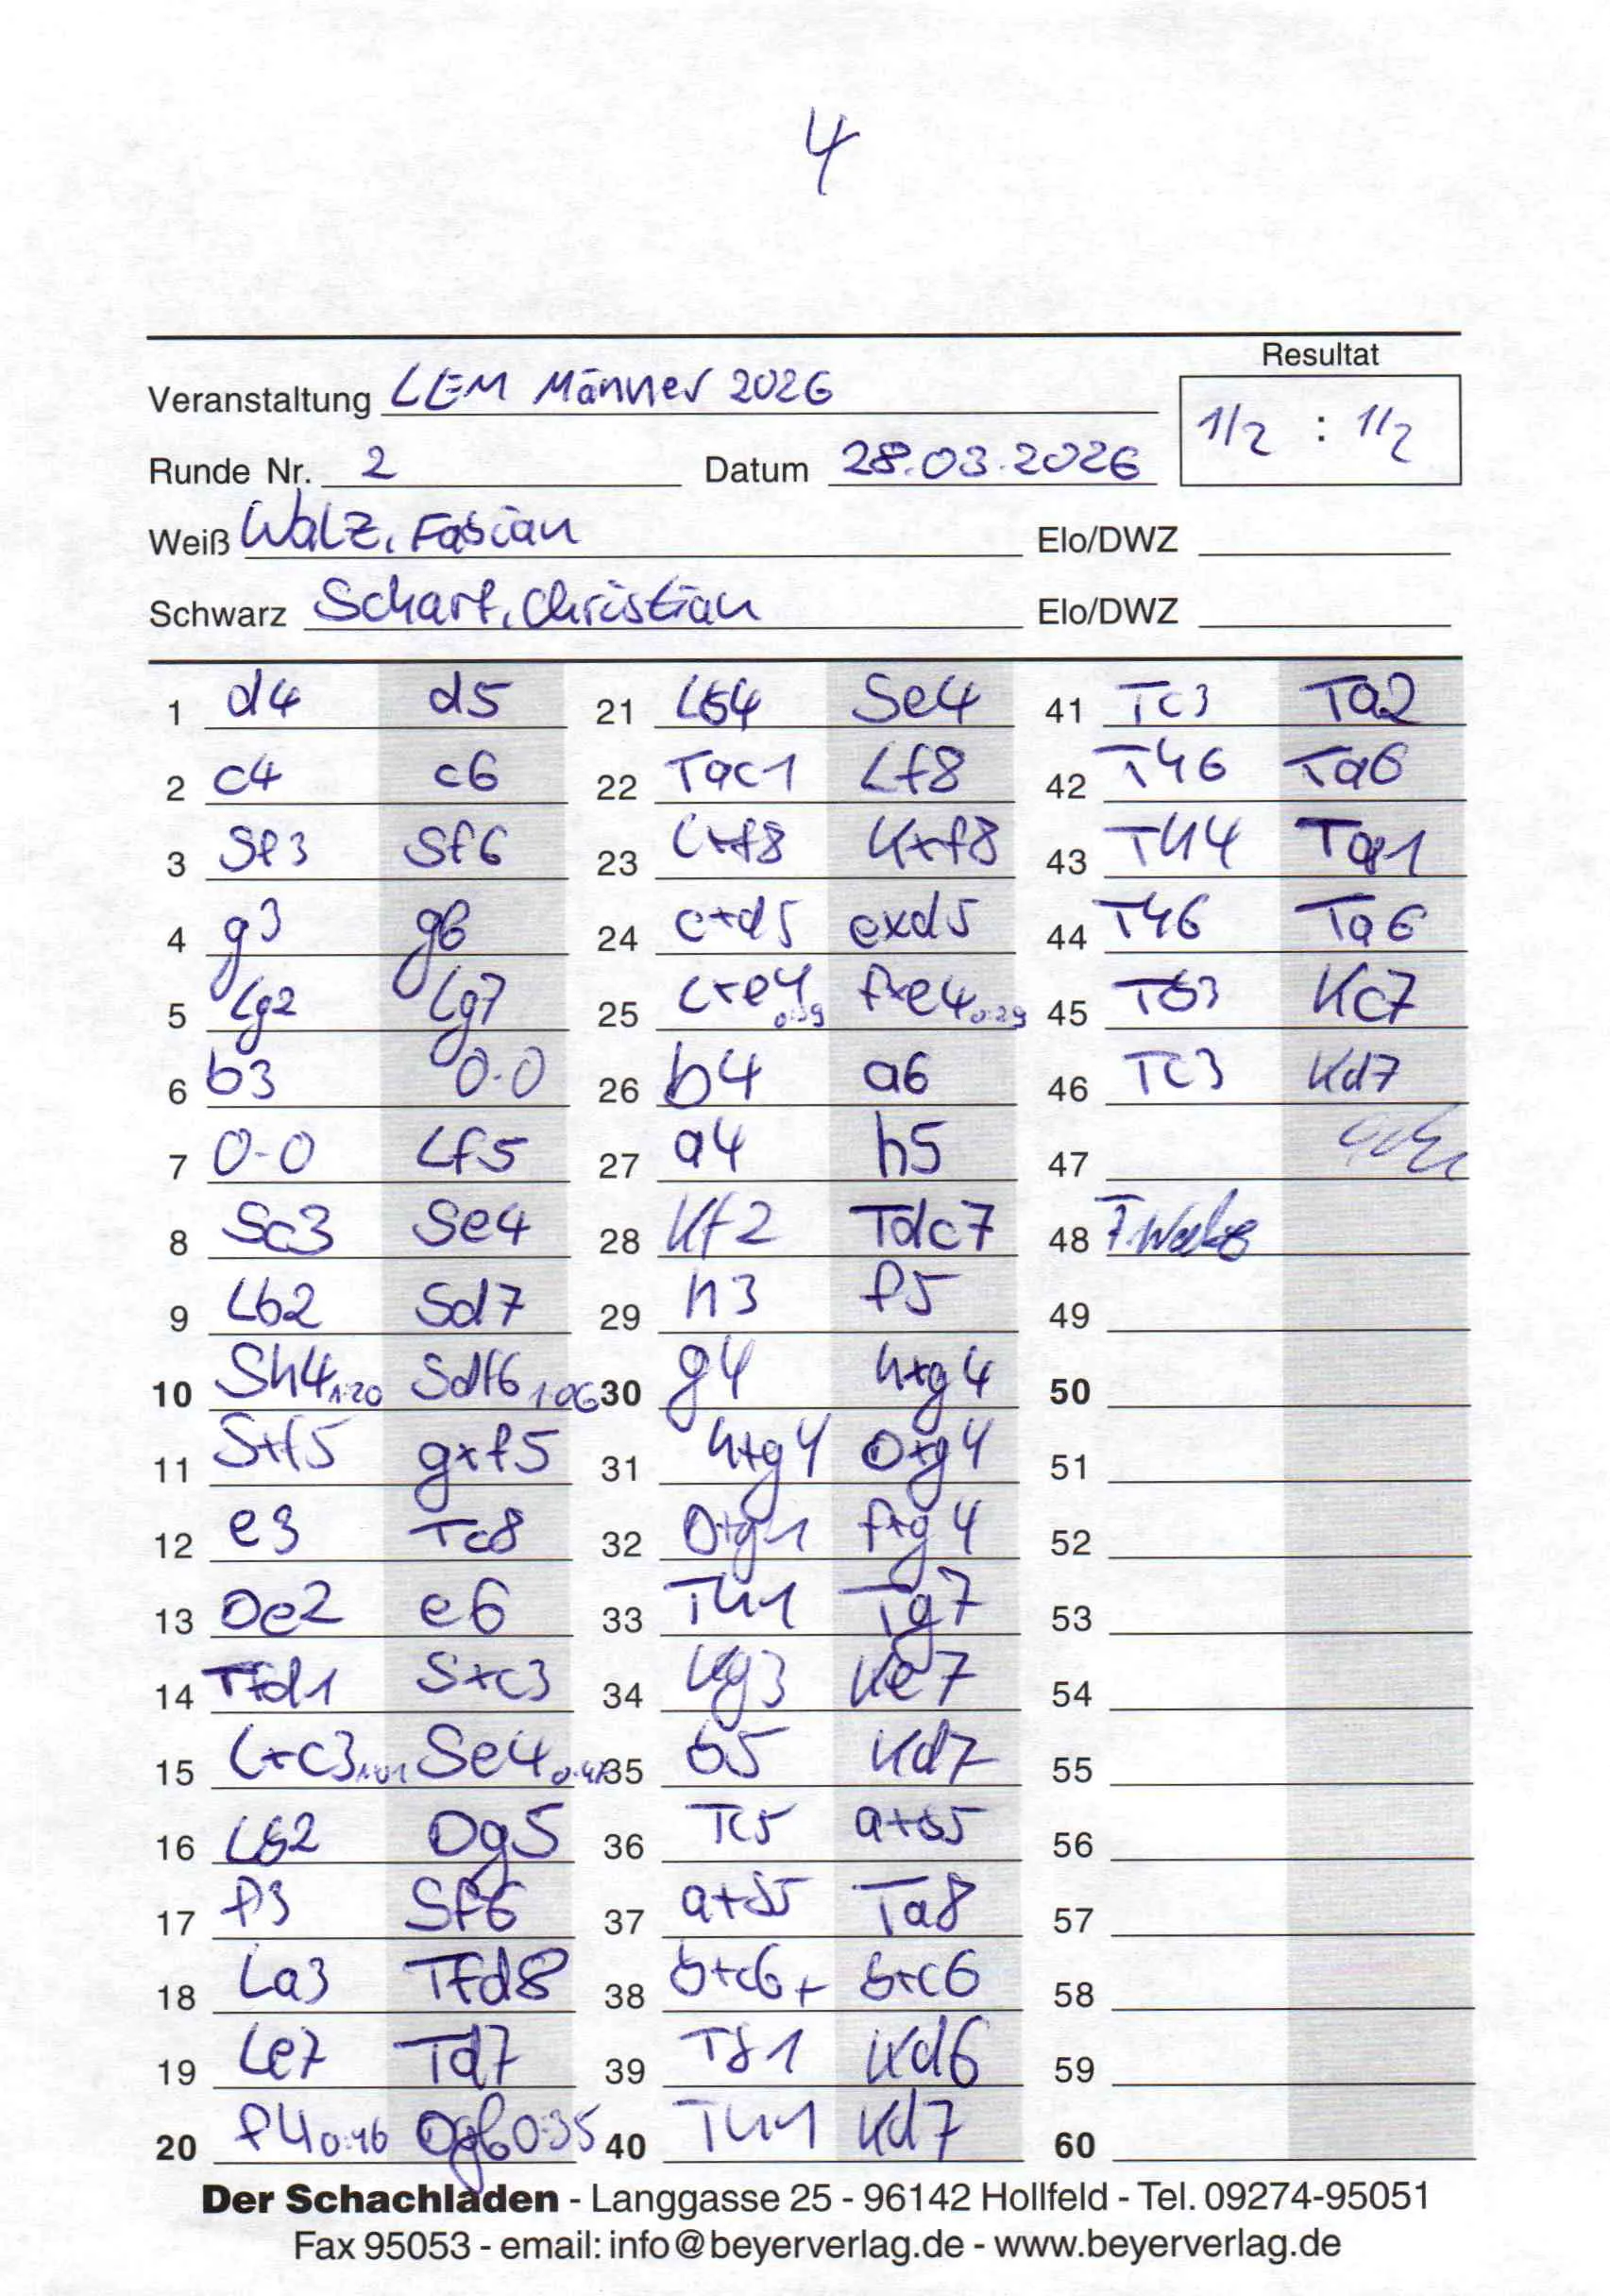 4
Resultat
Veranstaltung LEM Männer 2026
1/2 : 1/2
Runde Nr. 2 Datum 28.03.2026
Weiß Walz, Fabian Elo/DWZ
Schwarz Scharf, Christian Elo/DWZ
1 d4 d5 21 Lb4 Se4 41 Tc3 Ta2
2 c4 c6 22 Tac1 Lf8 42 Th6 Ta6
3 Sf3 Sf6 23 L+f8 K+f8 43 Th4 Ta1
4 g3 g6 24 c+d5 exd5 44 Th6 Ta6
5 Lg2 Lg7 25 L+e4 0:39 f+e4 0:29 45 Tb3 Kc7
6 b3 0-0 26 b4 a6 46 Tc3 Kd7
7 0-0 Lf5 27 a4 h5 47
8 Sc3 Se4 28 Kf2 Tdc7 48
9 Lb2 Sd7 29 h3 f5 49
10 Sh4 1:20 Sdf6 1:06 30 g4 h+g4 50
11 S+f5 gxf5 31 h+g4 D+g4 51
12 e3 Tc8 32 D+g4 f+g4 52
13 De2 e6 33 Th1 Tg7 53
14 Tfd1 S+c3 34 Kg3 Ke7 54
15 L+c3 1:01 Se4 35 b5 Kd7 55
16 Lb2 Dg5 36 Tc5 a+b5 56
17 f3 Sf6 37 a+b5 Ta8 57
18 La3 Tfd8 38 b+c6+ b+c6 58
19 Le7 Td7 39 Tb1 Kd6 59
20 f4 0:46 Dg6 0:35 40 Th1 Kd7 60
Der Schachladen - Langgasse 25 - 96142 Hollfeld - Tel. 09274-95051
Fax 95053 - email: info@beyerverlag.de - www.beyerverlag.de